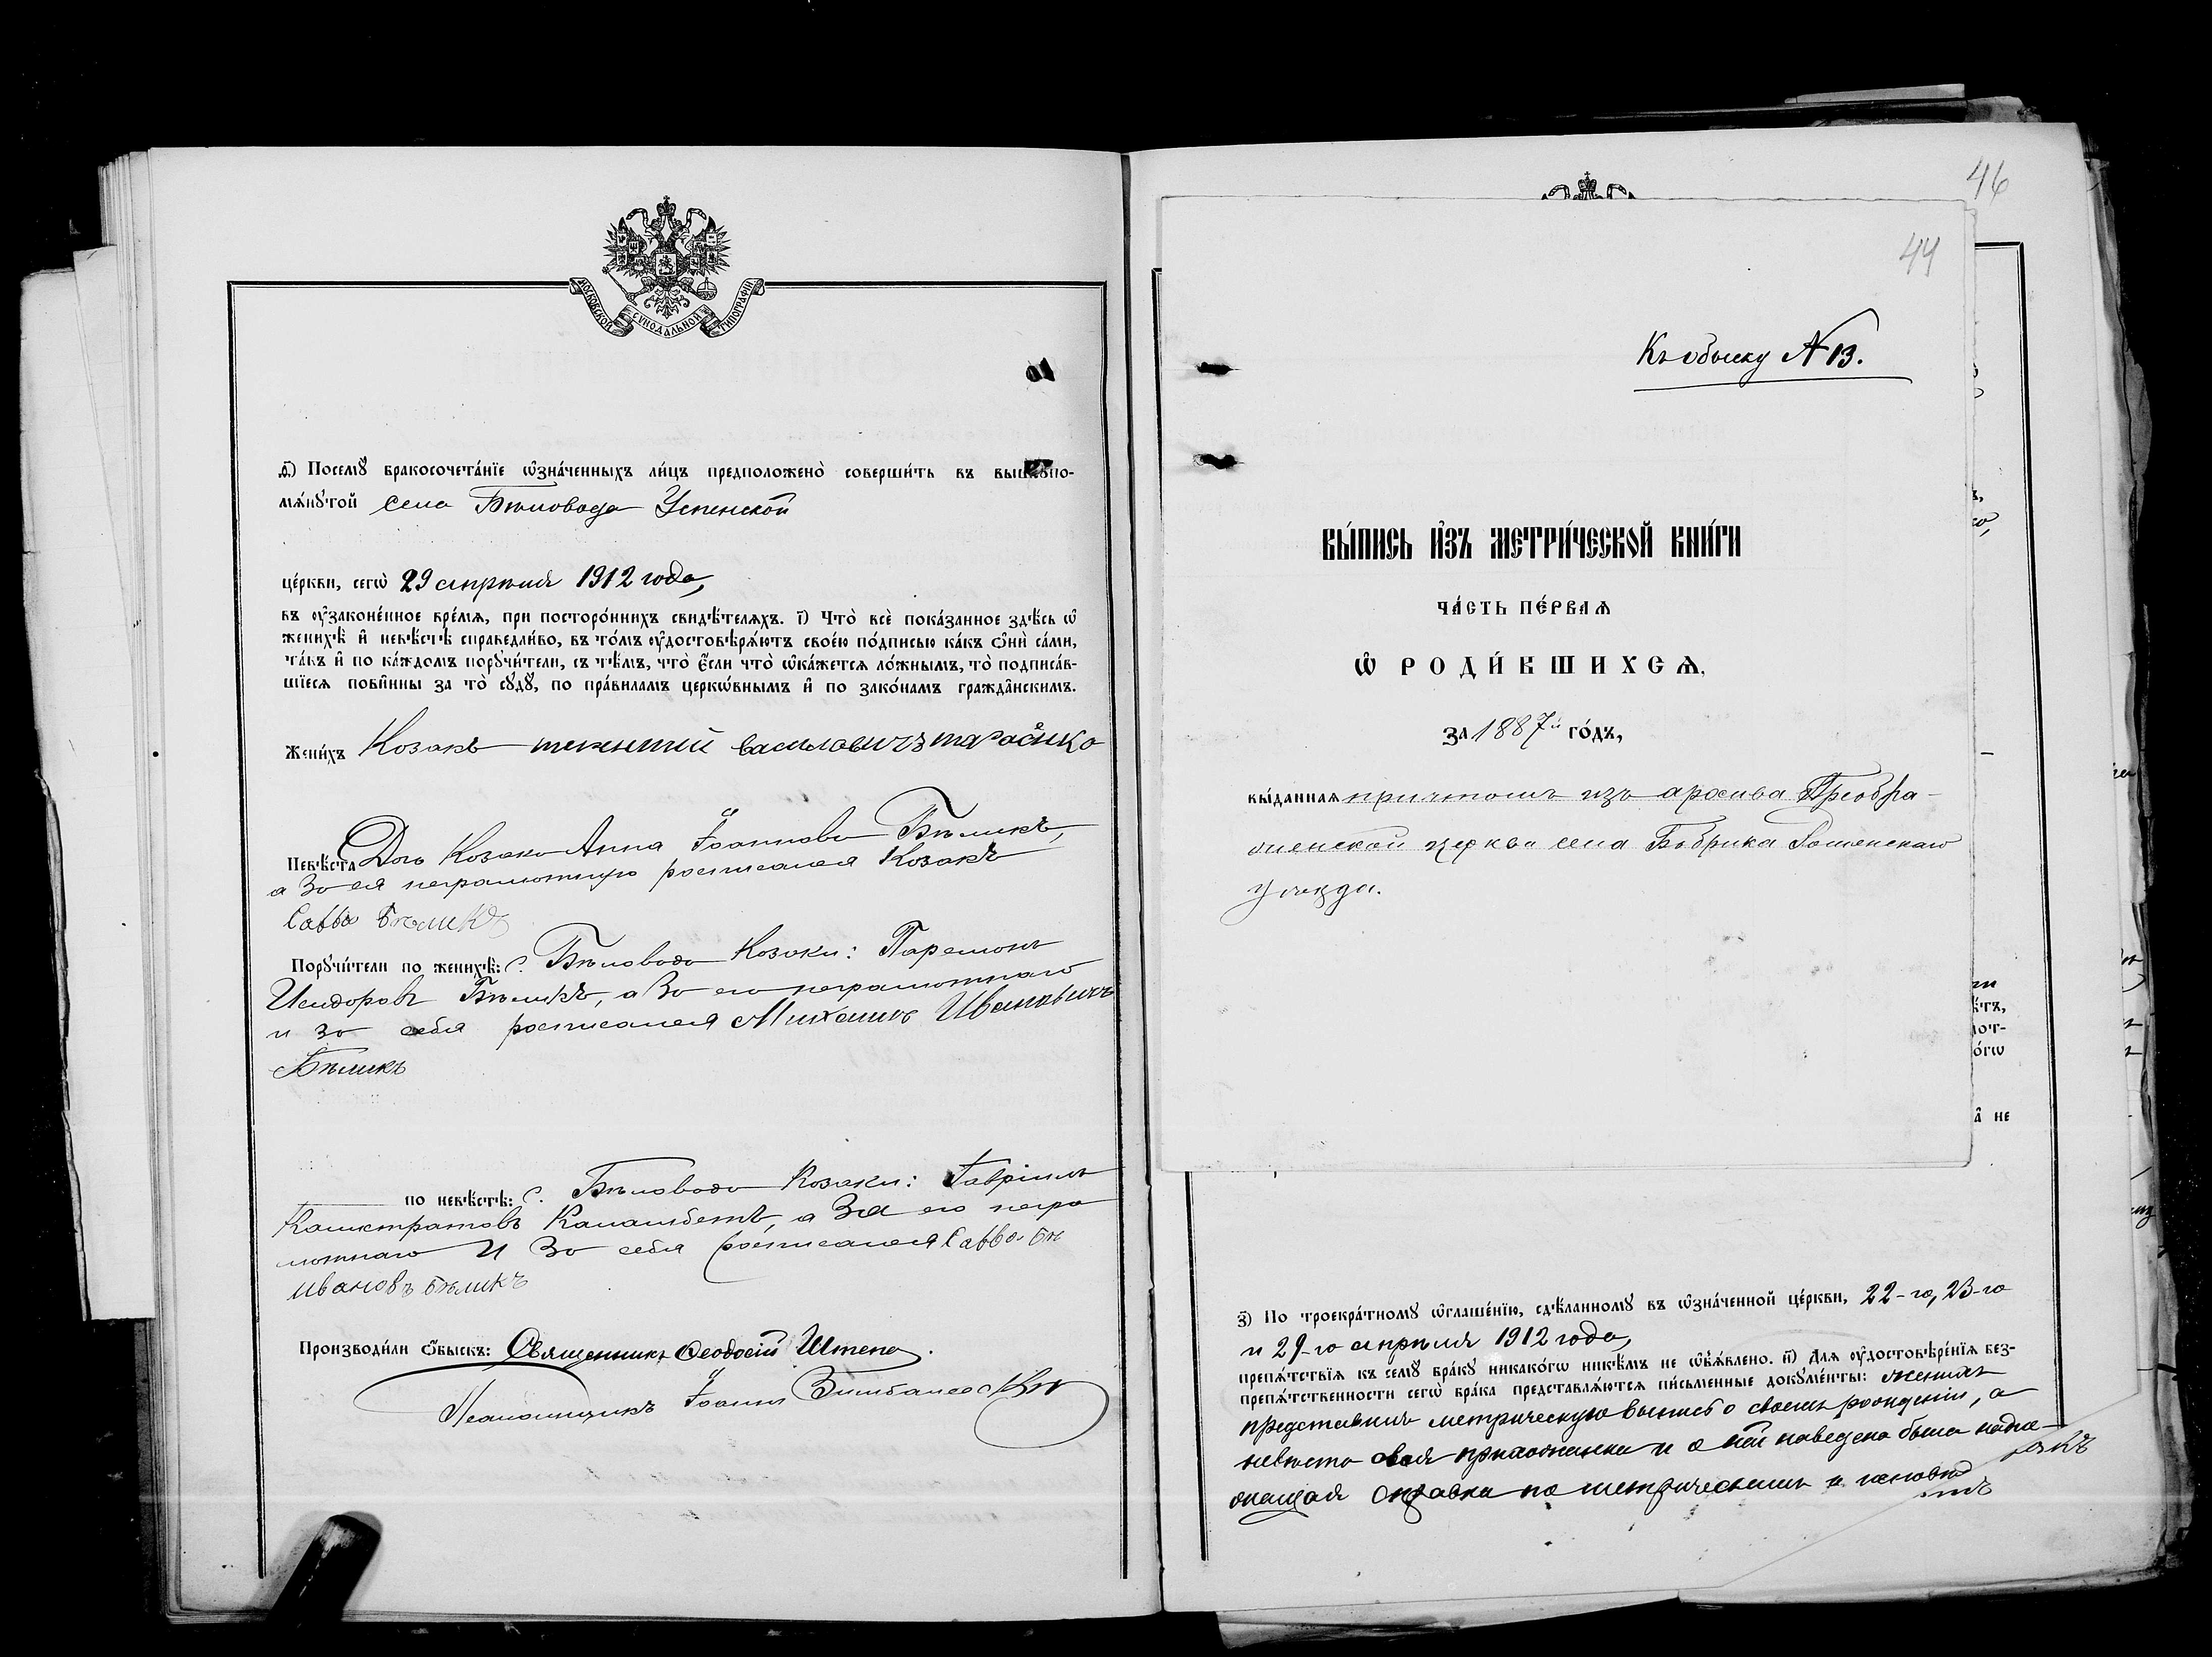 МОСКОВСКОЙ СѴНОДАЛЬНОЙ ТИПОГРАФІИ
д҃) Посемꙋ̀ бракосочета́нїе ѡ҆зна́ченныхъ ли́цъ предположено̀ соверши́ть въ вышеꙋпо-
мѧ́нꙋтой села Бѣловода Успенской
це́ркви, сегѡ̀ 29 апрѣля 1912 года,
въ ᲂу҆законе́нное вре́мѧ, при посторо́ннихъ свидѣ́телѧхъ. і҃) Что̀ всѐ пока́занное здѣ́сь ѡ҆
женихѣ̀ и҆ невѣ́стѣ справедли́во, въ то́мъ ᲂу҆достовѣрѧ́ютъ свое́ю по́дписью ка́къ ѻ҆нѝ са́ми,
та́къ и҆ по ка́ждомъ порꙋчи́тели, съ тѣ́мъ, что̀ є҆́сли что̀ ѡ҆ка́жетсѧ ло́жнымъ, то̀ подписа́в-
шїесѧ пови́нны за то̀ сꙋдꙋ̀, по пра́виламъ церкѡ́внымъ и҆ по зако́намъ гражда́нскимъ.
Жени́хъ Козакъ василовичъ
Невѣ́ста Дочь Козака Анна Іоаннова Бѣликъ,
а за ея неграмотную росписался Козакъ
Савва Бѣликъ
Порꙋчи́тели по женихѣ̀: с. Бѣловода Козаки: Парамонъ
Исидоровъ Бѣликъ, а за его неграмотнаго
и за себя росписался Михаилъ Ивановичъ
Бѣликъ
по невѣ́стѣ: с. Бѣловода Козаки: Гавріилъ
Калистратовъ а за его негра
мотнаго И За себя росписался Савва Бѣ
ивановъ бѣликъ
Производи́ли ѻ҆́быскъ: Священникъ Ѳеодосій Штепа.
Псаломщикъ Іоаннъ
46
44
Къ обыску № 13.
ВЫ́ПИСЬ И҆ЗЪ МЕТРИ́ЧЕСКОЙ КНИ́ГИ
ЧА́СТЬ ПЕ́РВАѦ
Ѡ҆ РОДИ́ВШИХСѦ,
за 1887й го́дъ,
вы́даннаѧ причтомъ изъ архива Преобра-
женской церкви села Бобрика Роменскаго
уѣзда.
з҃) По троекра́тномꙋ ѡ҆глаше́нїю, сдѣ́ланномꙋ въ ѡ҆зна́ченной це́ркви, 22-го, 23-го
и 29-го апрѣля 1912 года,
препѧ́тствїѧ къ семꙋ̀ бра́кꙋ никако́гѡ никѣ́мъ не ѡ҆б̾ѧ́влено. и҃) Длѧ ᲂу҆достовѣре́нїѧ без-
препѧ́тственности сегѡ̀ бра́ка представлѧ́ютсѧ пи́сьменные докꙋме́нты: женихъ
представилъ метрическую выпись о своемъ рожденіи, а
невѣста своя прихожанка и о ней наведена была надле-
жащая справка по метрическимъ и исповѣд